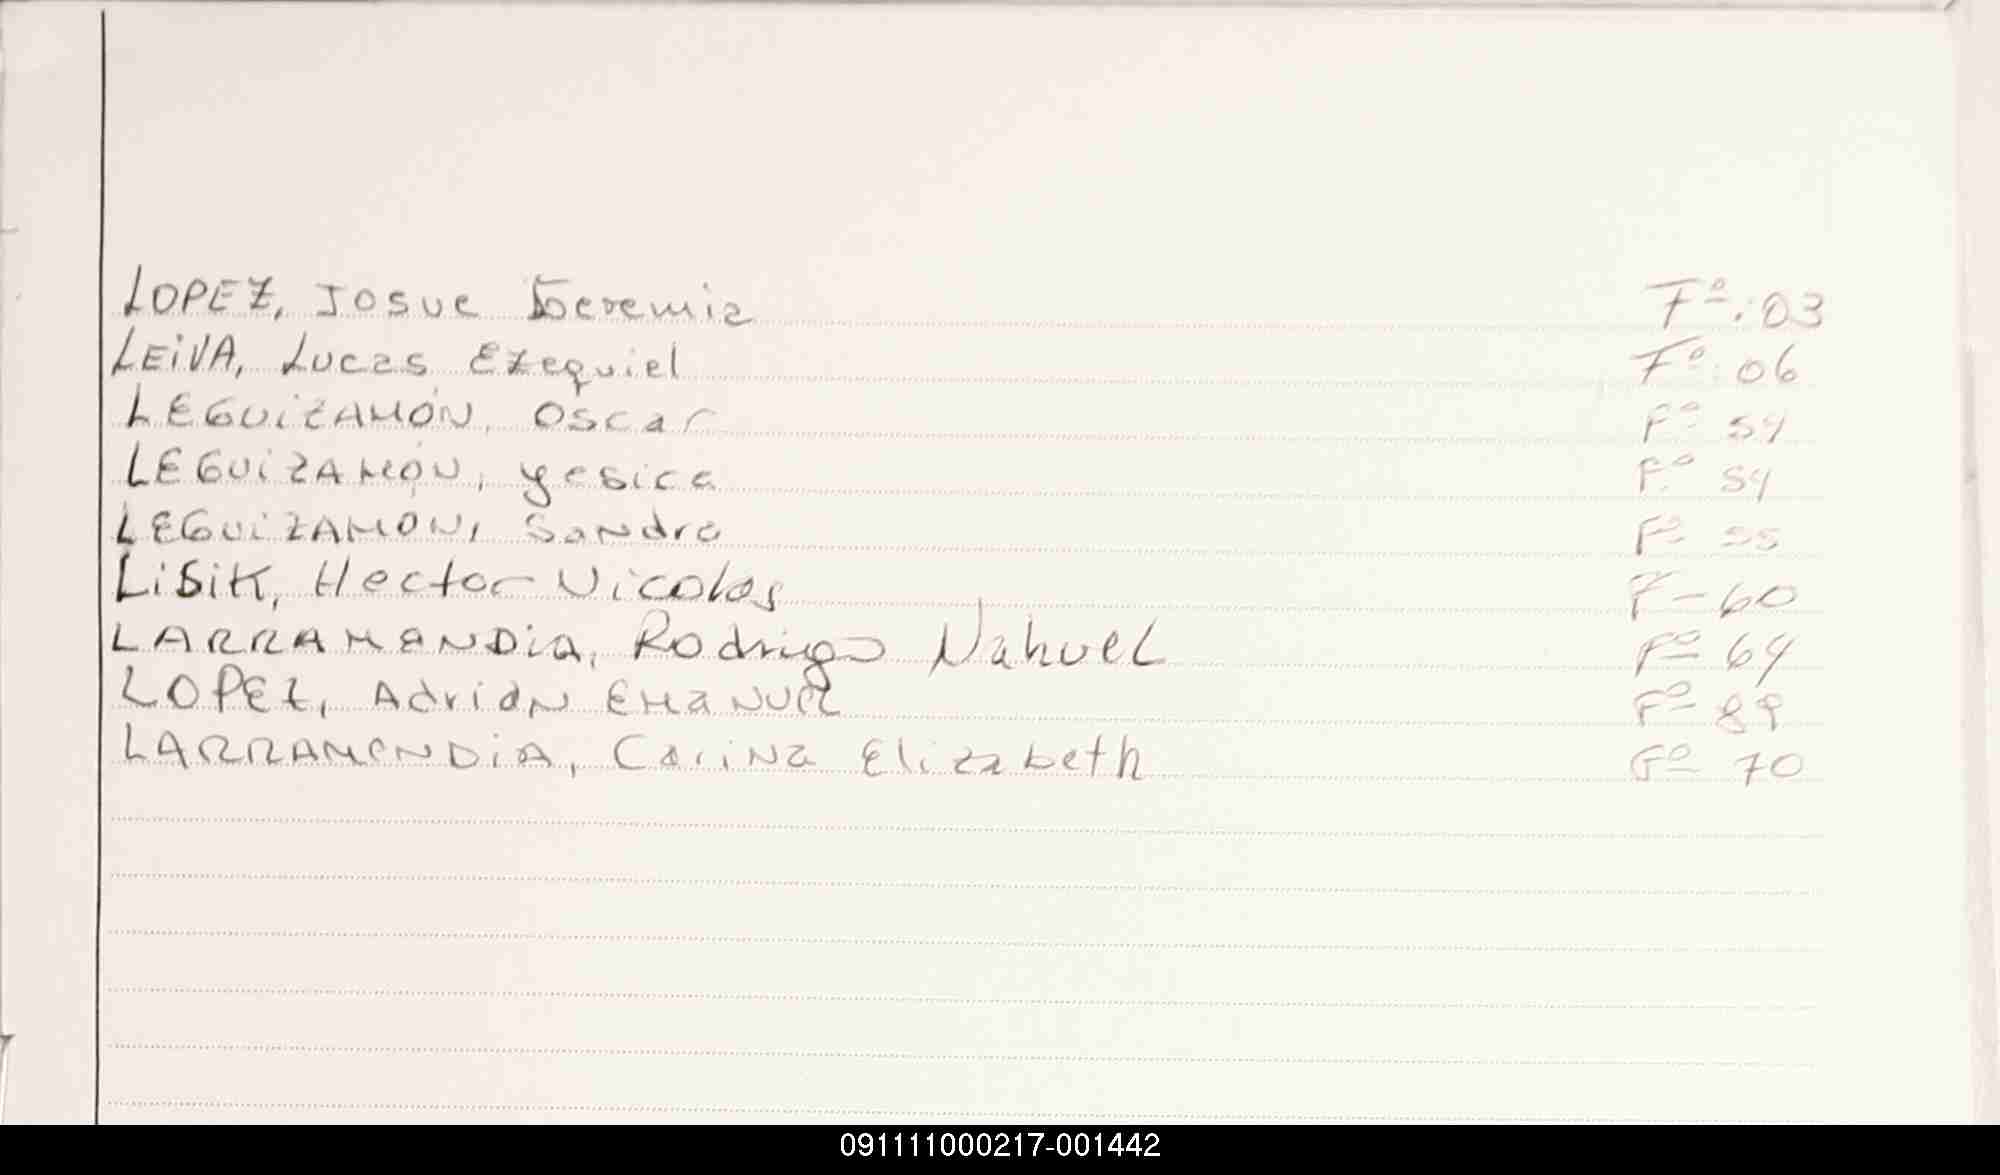 LOPEZ, Josue Jeremia Fº: 03
LEiVA, Lucas Ezequiel Fº: 06
LEGUiZAMÓN, Oscar Fº 54
LEGUiZAMÓN, yesica Fº 54
LEGUiZAMON, Sandra Fº 55
LiSiK, Hector Nicolas F- 60
LARRAMENDiA, Rodrigo Nahuel Fº 64
LOPEZ, Adrian Emanuel Fº 89
LARRAMENDiA, Carina Elizabeth Fº 70
091111000217-001442